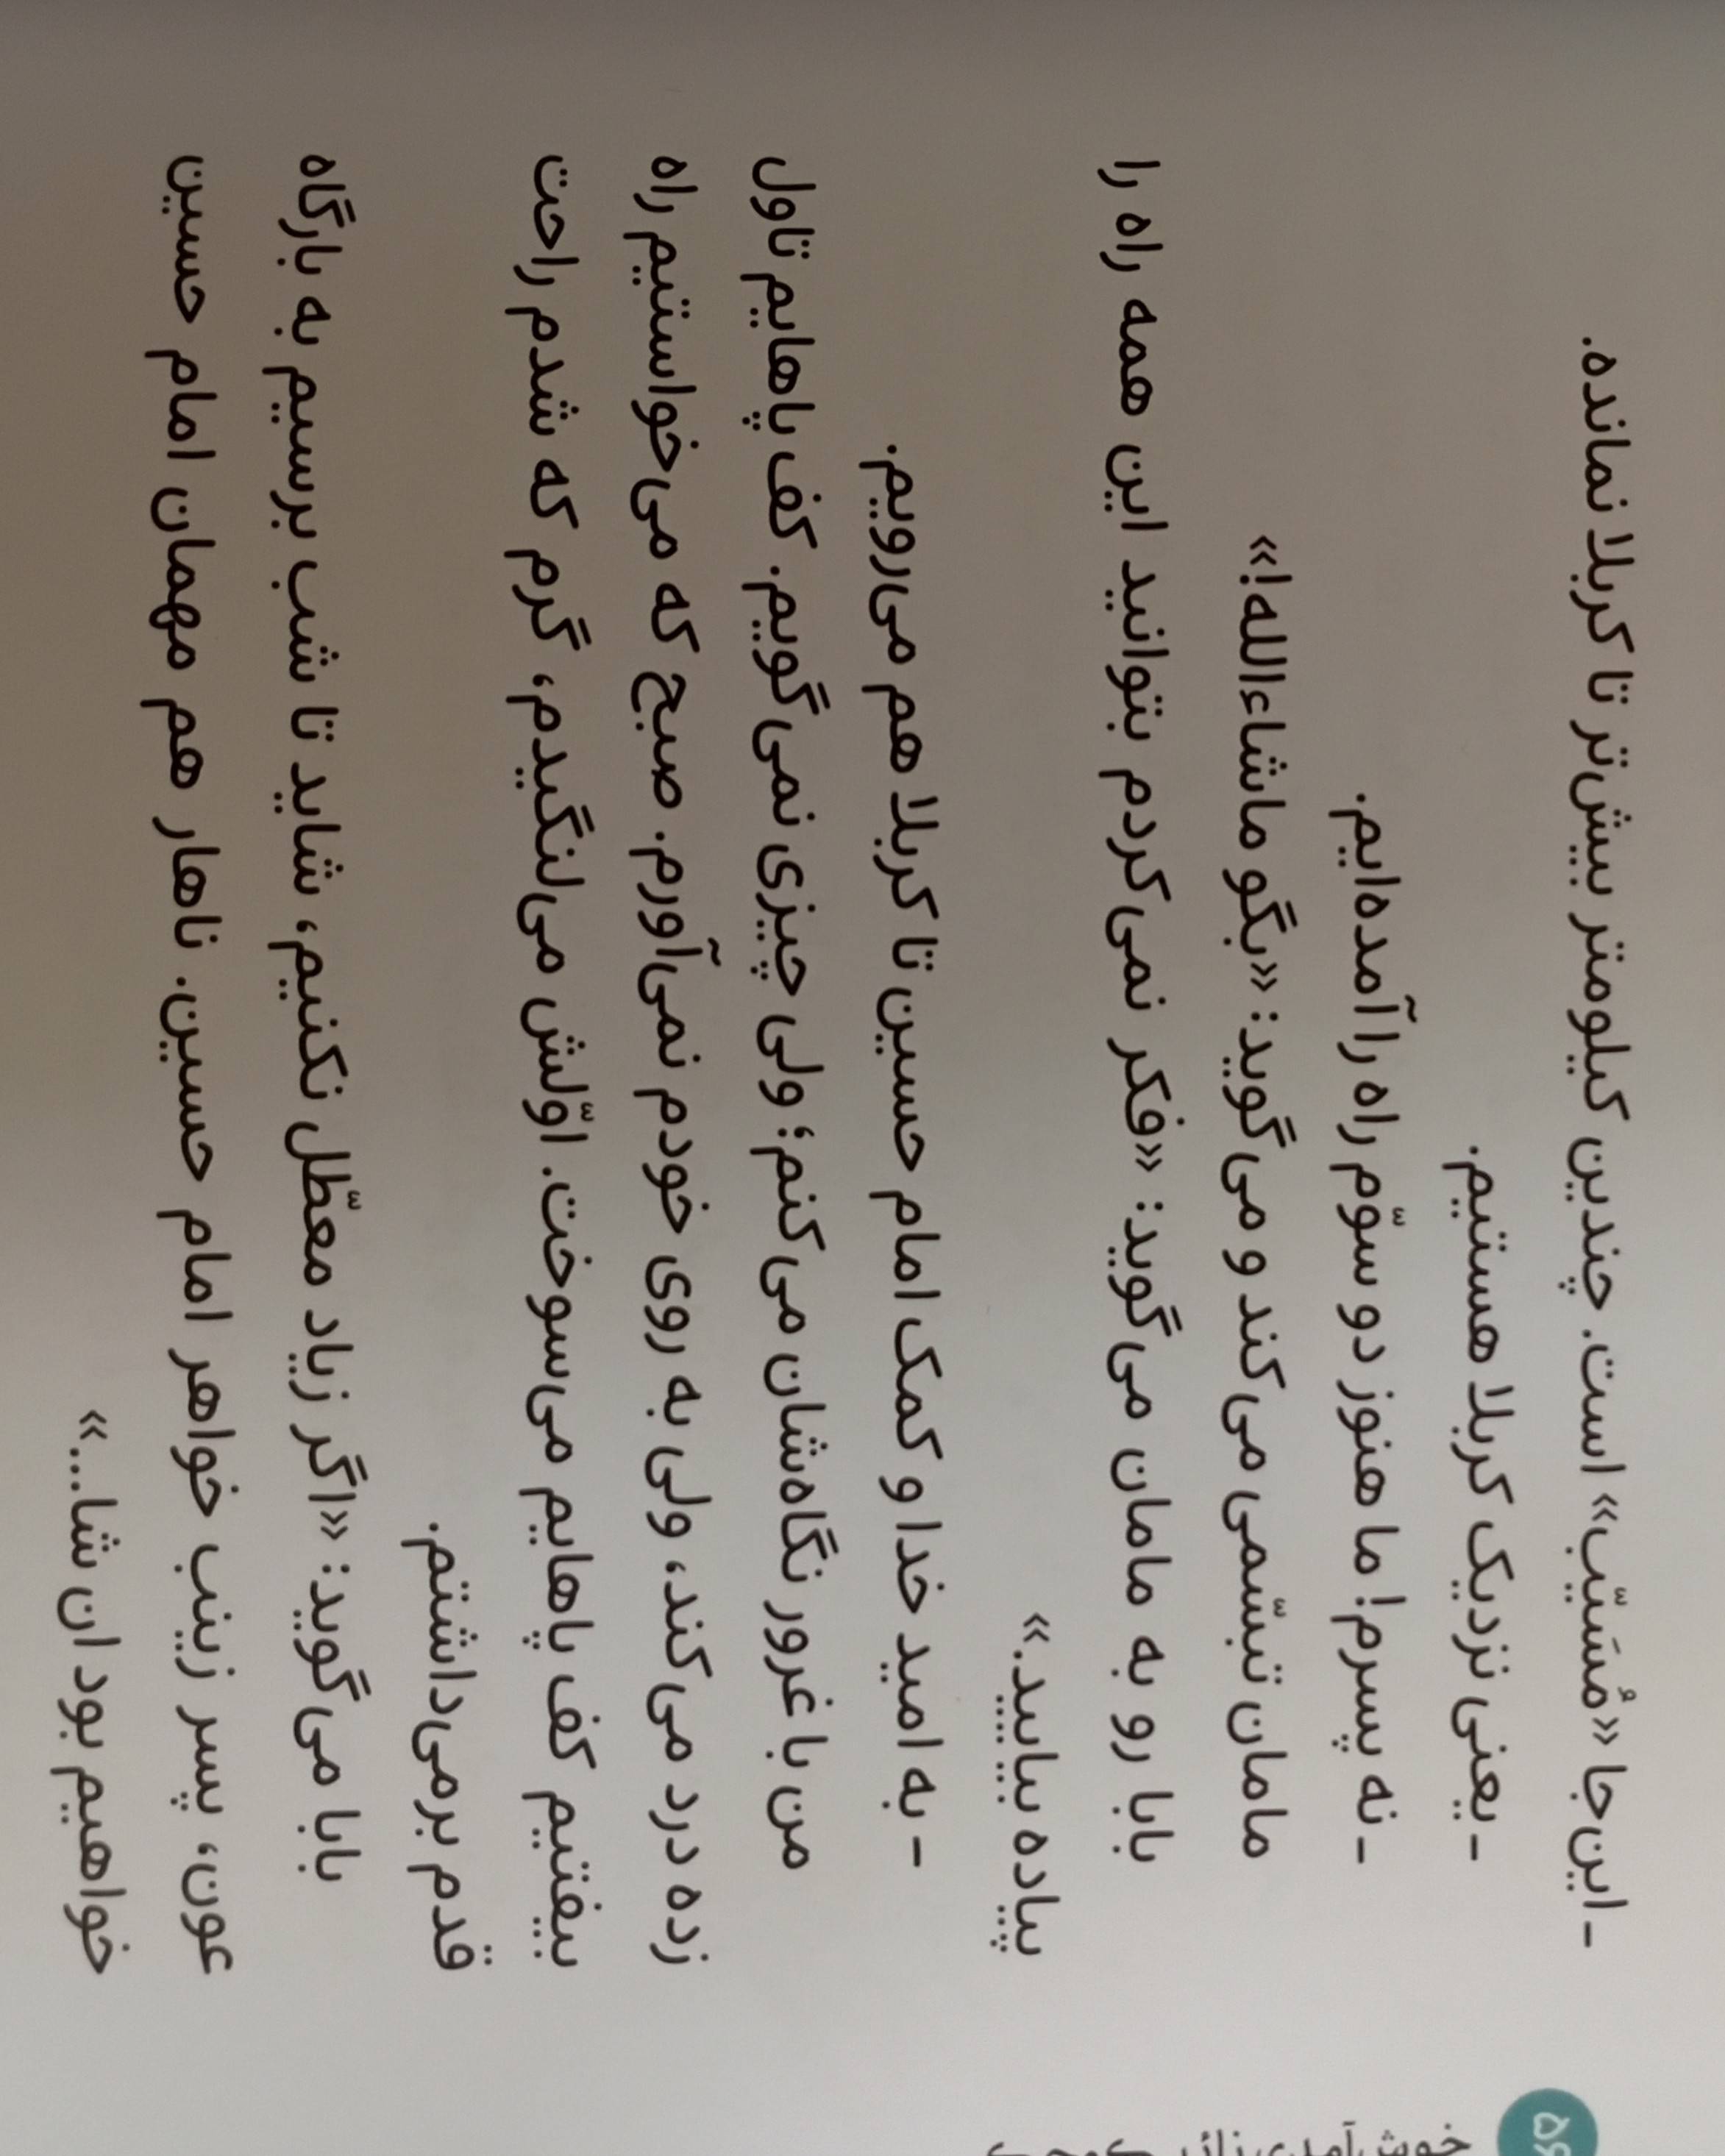 - این‌جا «مُسَیّب» است. چندین کیلومتر بیش‌تر تا کربلا نمانده.
- یعنی نزدیک کربلا هستیم.
- نه پسرم! ما هنوز دو سوّم راه را آمده‌ایم.
مامان تبسّمی می‌کند و می‌گوید: «بگو ماشاءالله!»
بابا رو به مامان می‌گوید: «فکر نمی‌کردم بتوانید این همه راه را
پیاده بیایید.»
- به امید خدا و کمک امام حسین تا کربلا هم می‌رویم.
من با غرور نگاه‌شان می‌کنم؛ ولی چیزی نمی‌گویم. کف پاهایم تاول
زده درد می‌کند، ولی به روی خودم نمی‌آورم. صبح که می‌خواستیم راه
بیفتیم کف پاهایم می‌سوخت. اوّلش می‌لنگیدم، گرم که شدم راحت
قدم برمی‌داشتم.
بابا می‌گوید: «اگر زیاد معطّل نکنیم، شاید تا شب برسیم به بارگاه
عون، پسر زینب خواهر امام حسین. ناهار هم مهمان امام حسین
خواهیم بود ان شا...»
خوش آمدی